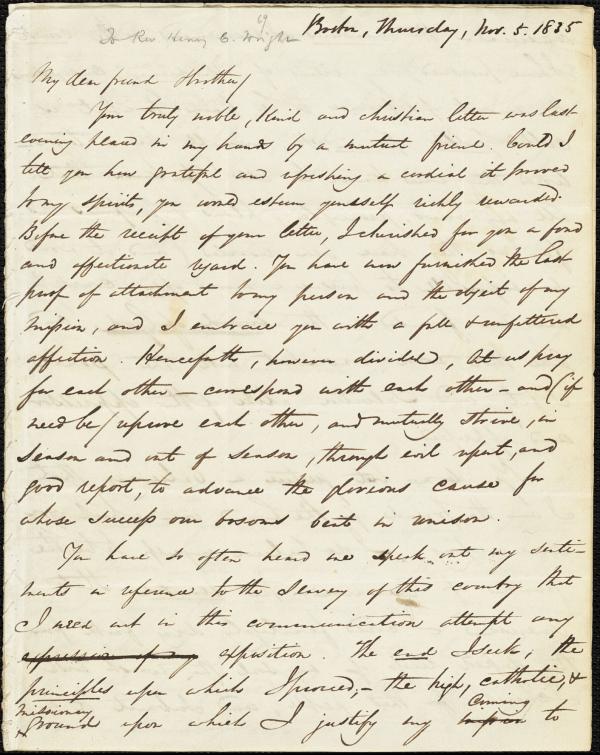 To Rev Henry C. Wright
Boston, Thursday, Nov. 5. 1835
My dear friend & brother/
Your truly noble, kind and christian letter was last
evening placed in my hands by a mutual friend. Could I
tell you how grateful and refreshing a cordial it proved
to my spirits, you would esteem yourself richly rewarded.
Before the receipt of your letter, I cherished for you a fond
and affectionate regard. You have now furnished the last
proof of attachment to my person and the object of my
mission, and I embrace you with a full & unfettered
affection. Henceforth, however divided, let us pray
for each other – correspond with each other – and (if
need be/ reprove each other, and mutually strive, in
season and out of season, through evil report, and
good report, to advance the glorious cause for
whose success our bosoms beat in unison.
You have so often heard me speak out my senti-
ments in reference to the Slavery of this country that
I need not in this communication attempt any
expression of my exposition. The end I seek; the
principles upon which I proceed;– the high, catholic, &
missionary ground upon which I justify my coming to